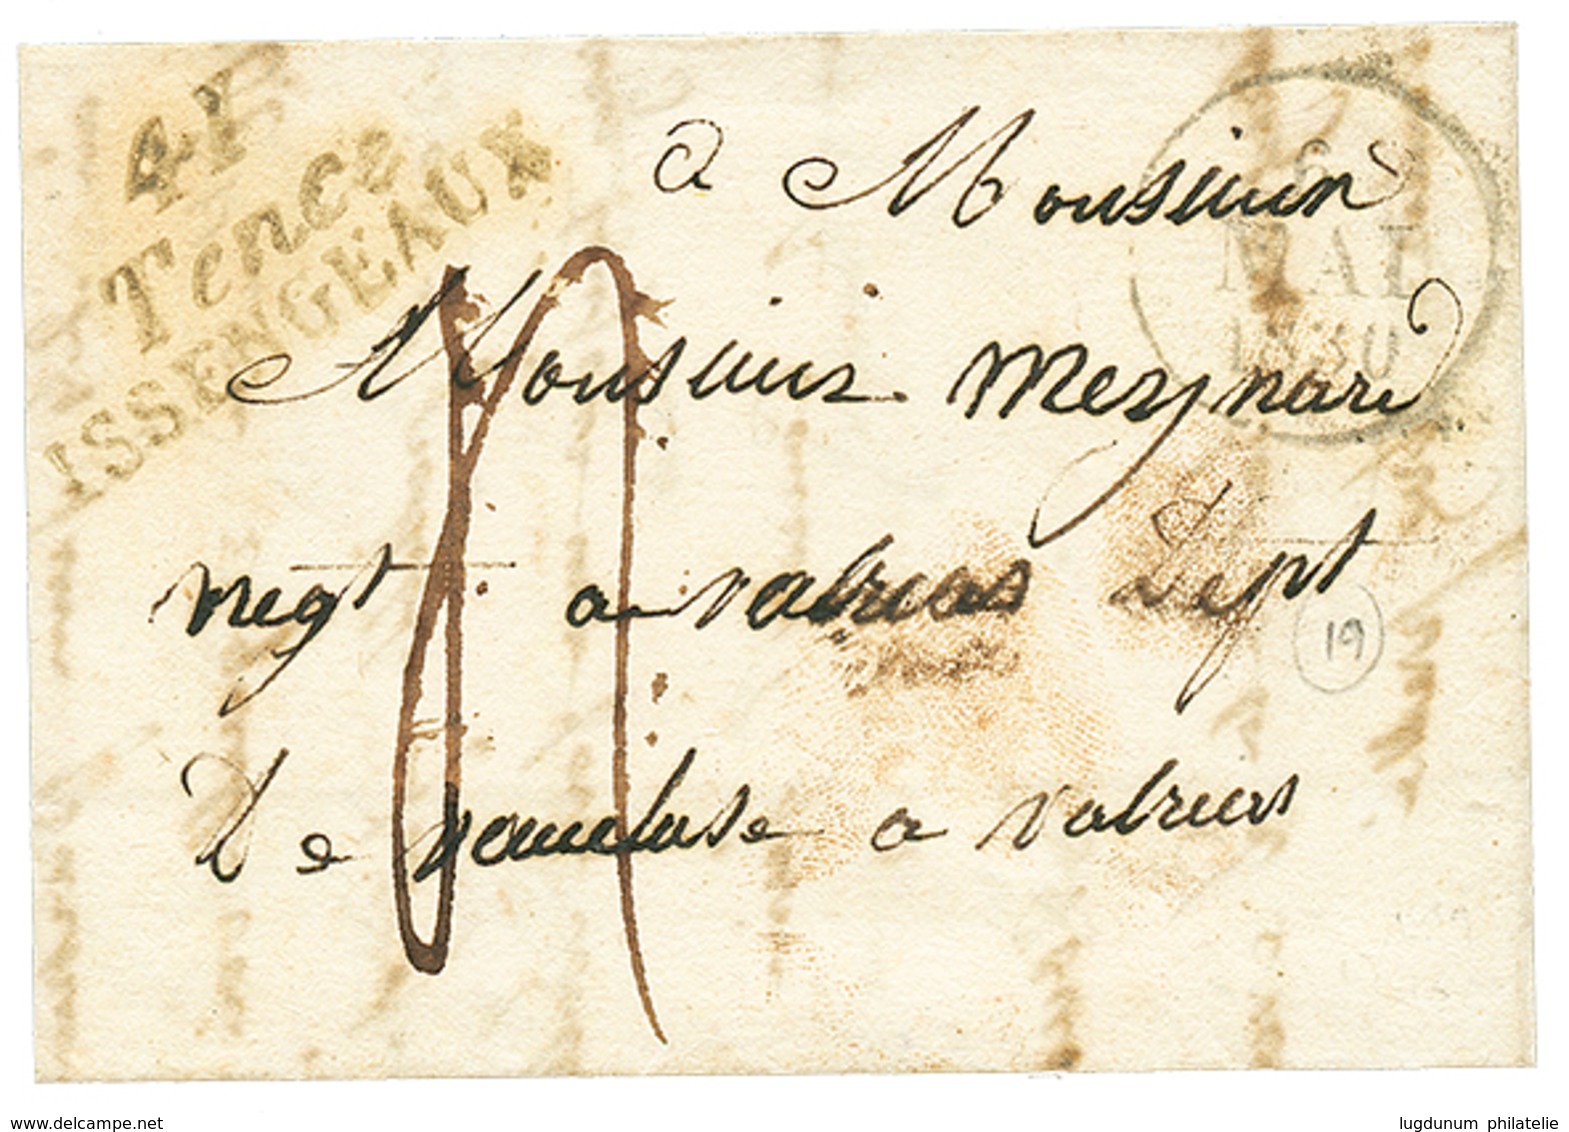 4F
Tence
ISSENGEAUX
6
MAI
1830
à Monsieur
Monsieur Meynard
negt a valreas Dept
19
De vaucluse a valreas
www.delcampe.net
lugdunum philatelie